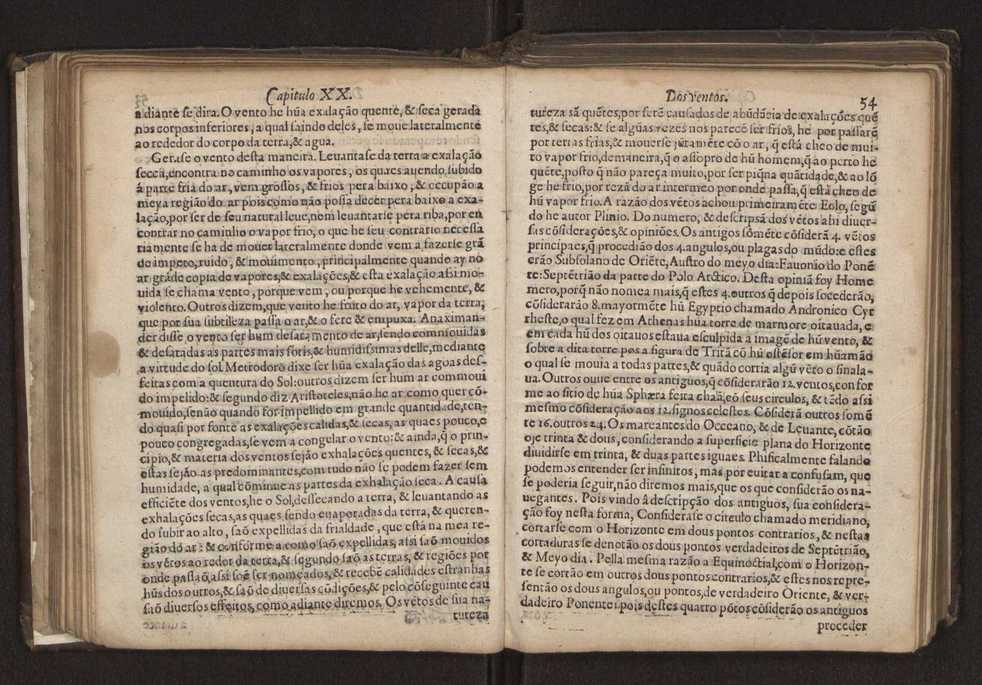 Capitulo XX.
adiante se dira. O vento he hũa exalação quente, & seca gerada
nos corpos inferiores, a qual saindo deles, se moue lateralmente
ao rededor do corpo da terra, & agua.
Gerase o vento desta maneira. Leuantase da terra a exalação
secca, encontra no caminho os vapores, os quaes auendo subido
á parte fria do ar, vem grossos, & frios pera baixo, & occupão a
meya região do ar pois como não possa decer pera baxo a exa-
lação, por ser de seu natural leue, nem leuantarse pera riba, por en
contrar no caminho o vapor frio, o que he seu contrario necessa
riamente se ha de mouer lateralmente donde vem a fazerse grã
de impeto, ruido, & mouimento, principalmente quando ay no
ar grãde copia de vapores, & exalações, & esta exalação assi mo-
uida se chama vento, porque vem, ou porque he vehemente, &
violento. Outros dizem, que vento he fruto do ar, vapor da terra;
que por sua subtileza passa o ar, & o fere & empuxa. Anaximan-
der disse, o vento ser hum desatamento de ar, sendo commouidas
& desatadas as partes mais sotis, & humidissimas delle, mediante
a virtude do sol. Metrodoro dixe ser hũa exalação das agoas des-
feitas com a quentura do Sol: outros dizem ser hum ar commoui
do impelido: & segundo diz Aristoteles, não he ar como quer cō-
mouido, senão quando for impellido em grande quantidade, ten-
do quasi por fonte as exalações calidas, & secas, as quaes pouco, e
pouco congregadas, se vem a congelar o vento: & ainda, q̃ o prin-
cipio, & materia dos ventos sejão exhalações quentes, & secas, &
estas sejão as predominantes, com tudo não se podem fazer sem
humidade, a qual cōminue as partes da exhalação seca. A causa
efficiẽte dos ventos, he o Sol, dessecando a terra, & leuantando as
exhalações secas, as quaes sendo euaporadas da terra, & queren-
do subir ao alto, saõ expellidas da frialdade, que está na mea re-
gião do ar: & conforme a como saõ expellidas, assi saõ mouidos
os vẽtos ao redor da terra, & segundo saõ as terras, & regiões por
onde passaõ, assi soẽ ser nomeados, & recebẽ calidades estranhas
hũs dos outros, & saõ de diuersas cõdições, & pelo cõseguinte cau
saõ diuersos effeitos, como adiante diremos. Os vẽtos de sua na-
tureza
Dos ventos. 54
tureza sã quẽtes, por serẽ causados de abũdãcia de exalações quẽ
tes, & secas: & se algũas vezes nos parecẽ ser frios, he por passarẽ
por terras frias, & mouerse jũtamẽte cõ o ar, q̃ està cheo de mui-
to vapor frio, demaneira, q̃ o assopro de hũ homem, q̃ ao perto he
quẽte, posto q̃ não pareça muito, por ser piq̃na quãtidade, & ao lõ
ge he frio, por rezã do ar intermeo por onde passa, q̃ està cheo de
hũ vapor frio. A razão dos vẽtos achou primeiramẽte Eolo, segũ
do he autor Plinio. Do numero, & descripsã dos vẽtos abi diuer-
sas cõsiderações, & opiniões. Os antigos sómẽte cõsiderã 4. vẽtos
principaes, q̃ procedião dos 4. angulos, ou plagas do mũdo: e estes
erão Subsolano de Oriẽte, Austro do meyo dia: Fauonio do Ponẽ
te: Septẽtrião da parte do Polo Arctico. Desta opiniã foy Home
mero, porq̃ não nomea mais, q̃ estes 4. outros q̃ depois socederão,
cõsiderarão 8. mayormẽte hũ Egyptio chamado Andronico Cyr
rheste, o qual fez em Athenas hũa torre de marmore oitauada, e
em cada hũ dos oitauos estaua esculpida a imagẽ de hũ vento, &
sobre a dita torre pos a figura de Tritã cõ hũ ostẽsor em hũa mão
o qual se mouia a todas partes, & quãdo corria algũ vẽto o sinala-
ua. Outros ouue entre os antiguos, q̃ cõsiderarão 12. ventos, confor
me ao sitio de hũa Sphæra feita chaã, eõ seus circulos, & tẽdo assi
mesmo cõsideração aos 12. signos celestes. Cõsiderã outros somẽ
te 16. outros 24. Os mareantes do Occeano, & de Leuante, cõtão
oje trinta & dous, considerando a superficie plana do Horizonte
diuidirse em trinta, & duas partes iguaes. Phisicalmente falando
podemos entender ser infinitos, mas por euitar a confusam, que
se poderia seguir, não diremos mais, que os que considerão os na-
uegantes. Pois vindo à descripção dos antiguos, sua considera-
ção foy nesta forma, Considerase o circulo chamado meridiano,
cortarse com o Horizonte em dous pontos contrarios, & nestas
cortaduras se denotão os dous pontos verdadeiros de Septẽtrião,
& Meyo dia. Pella mesma razão a Equinoctial, com o Horizon-
te se cortão em outros dous pontos contrarios, & estes nos repre-
sentão os dous angulos, ou pontos, de verdadeiro Oriente, & ver-
dadeiro Ponente: pois destes quatro põtos cõsiderão os antiguos
proceder